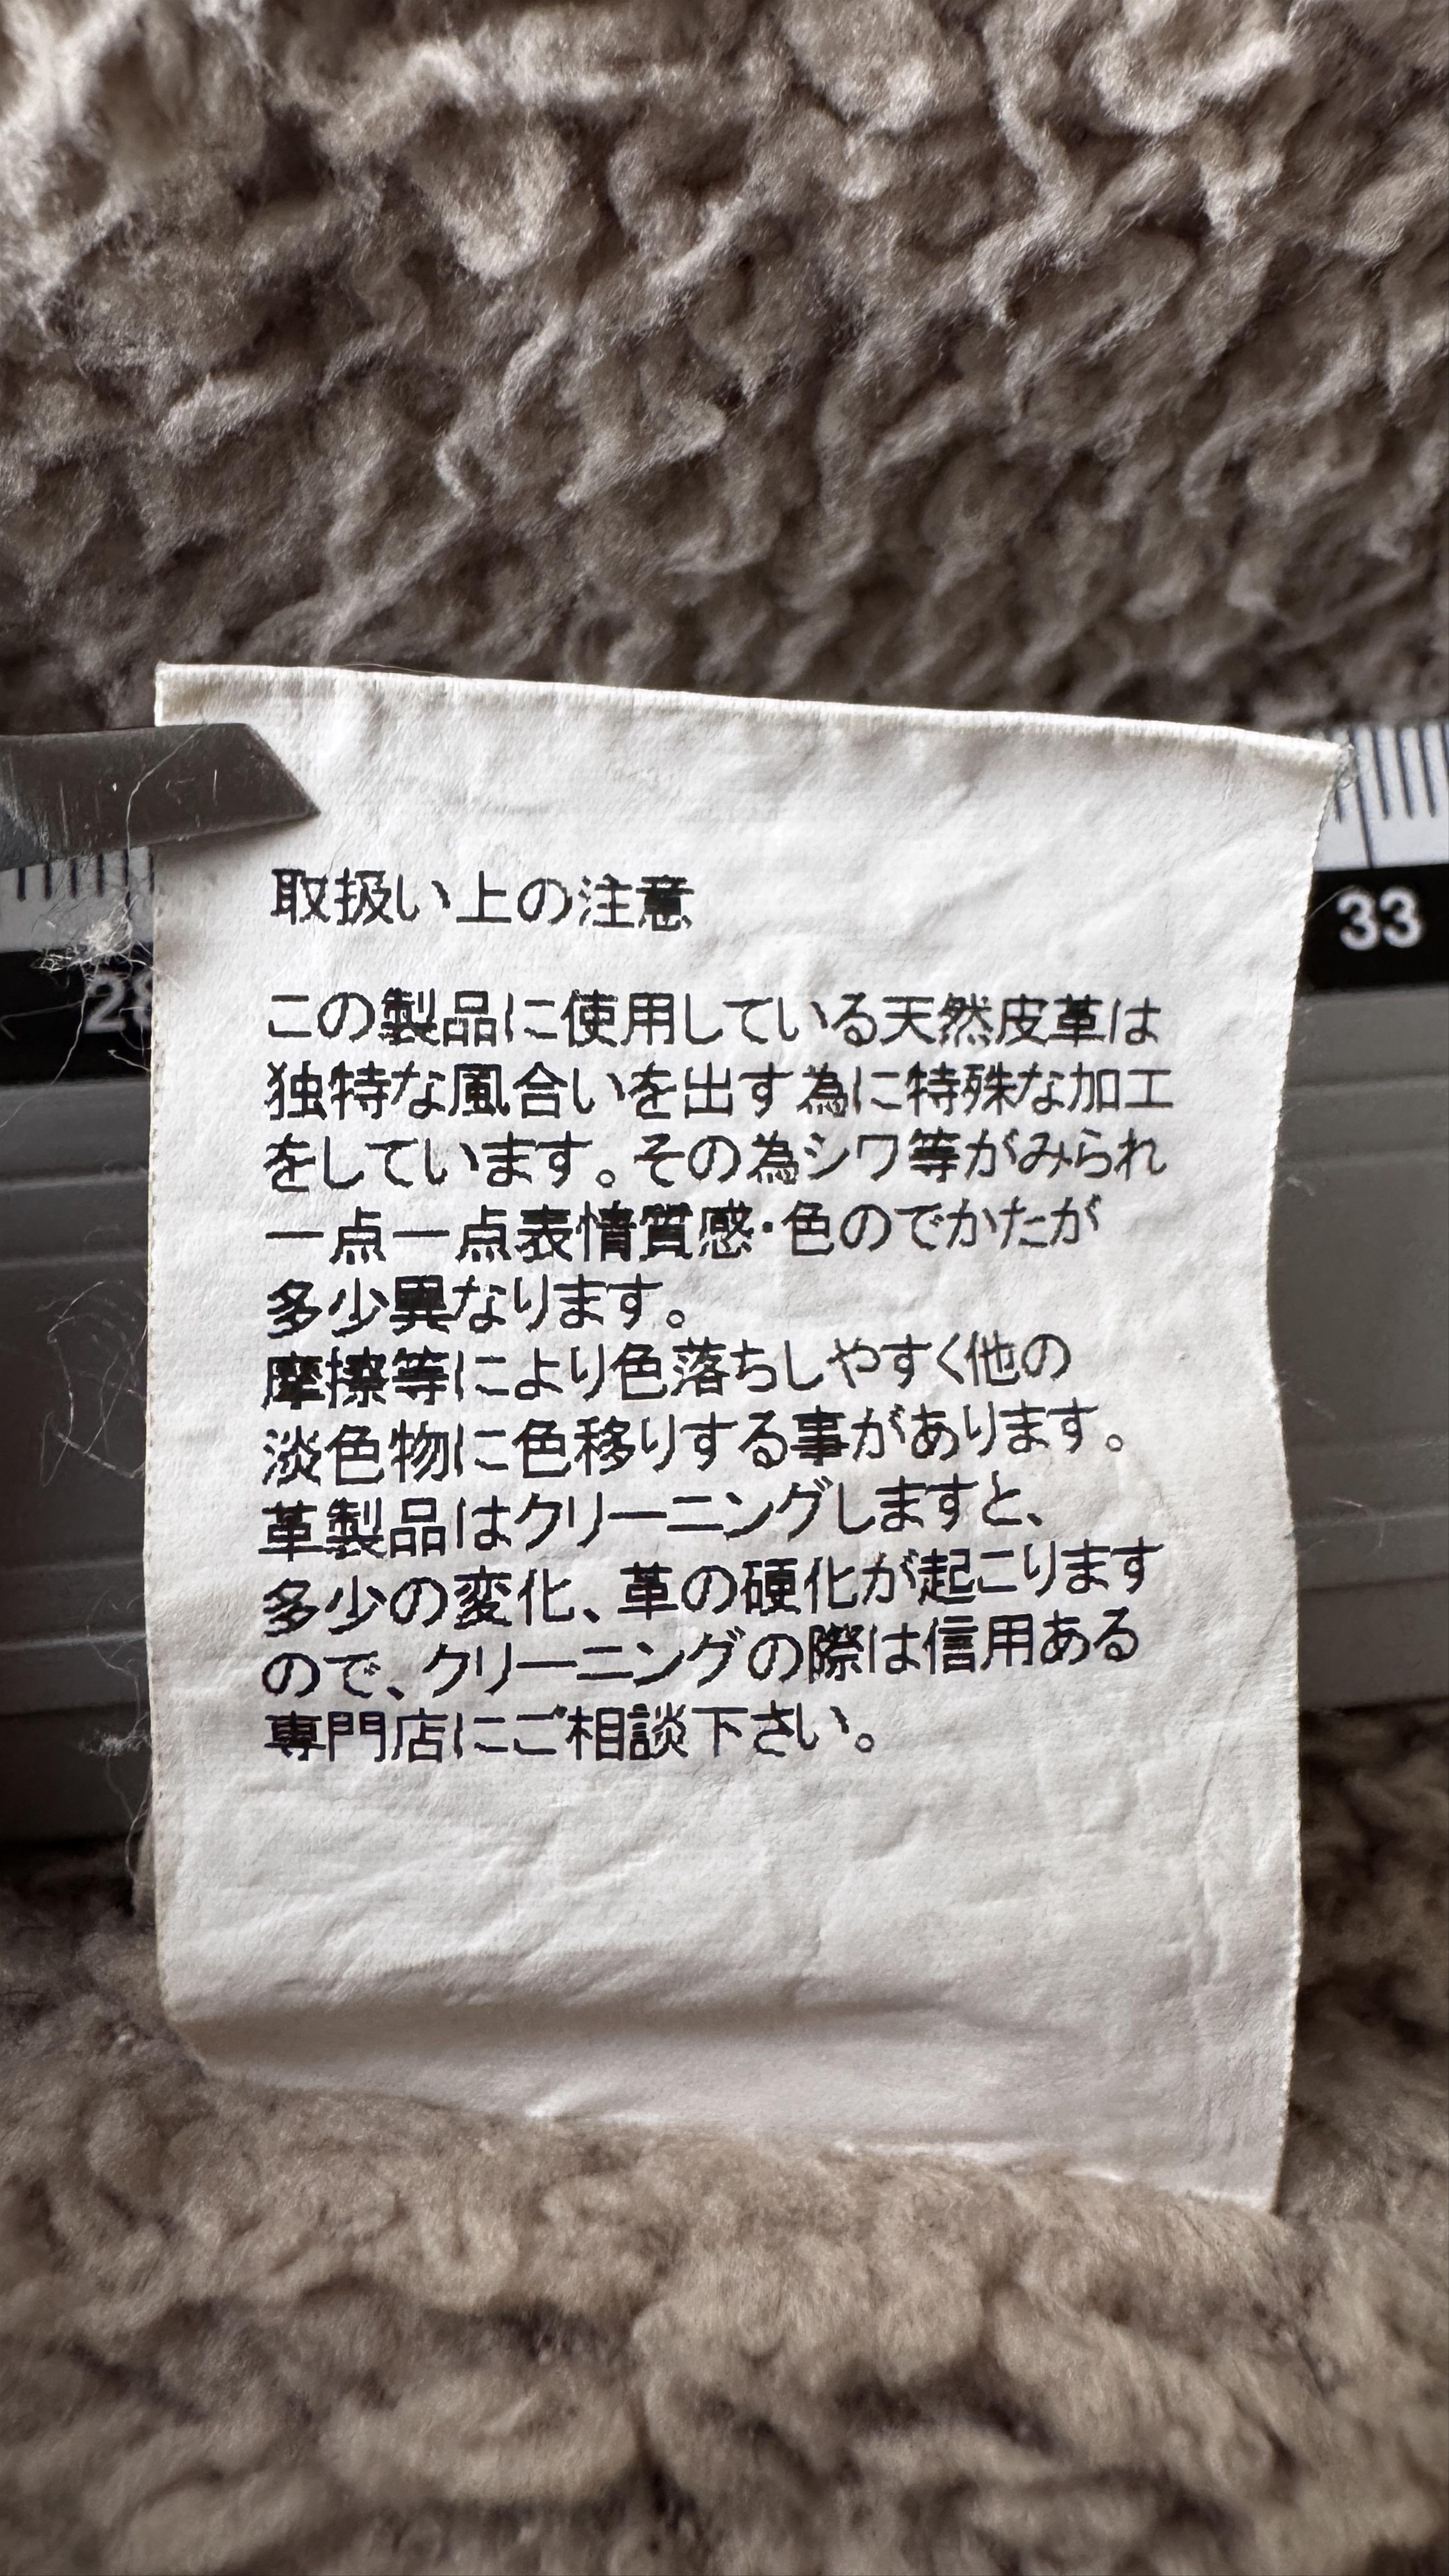 取扱い上の注意
この製品に使用している天然皮革は
独特な風合いを出す為に特殊な加工
をしています。その為シワ等がみられ
一点一点表情質感・色のでかたが
多少異なります。
摩擦等により色落ちしやすく他の
淡色物に色移りする事があります。
革製品はクリーニングしますと、
多少の変化、革の硬化が起こります
ので、クリーニングの際は信用ある
専門店にご相談下さい。
33